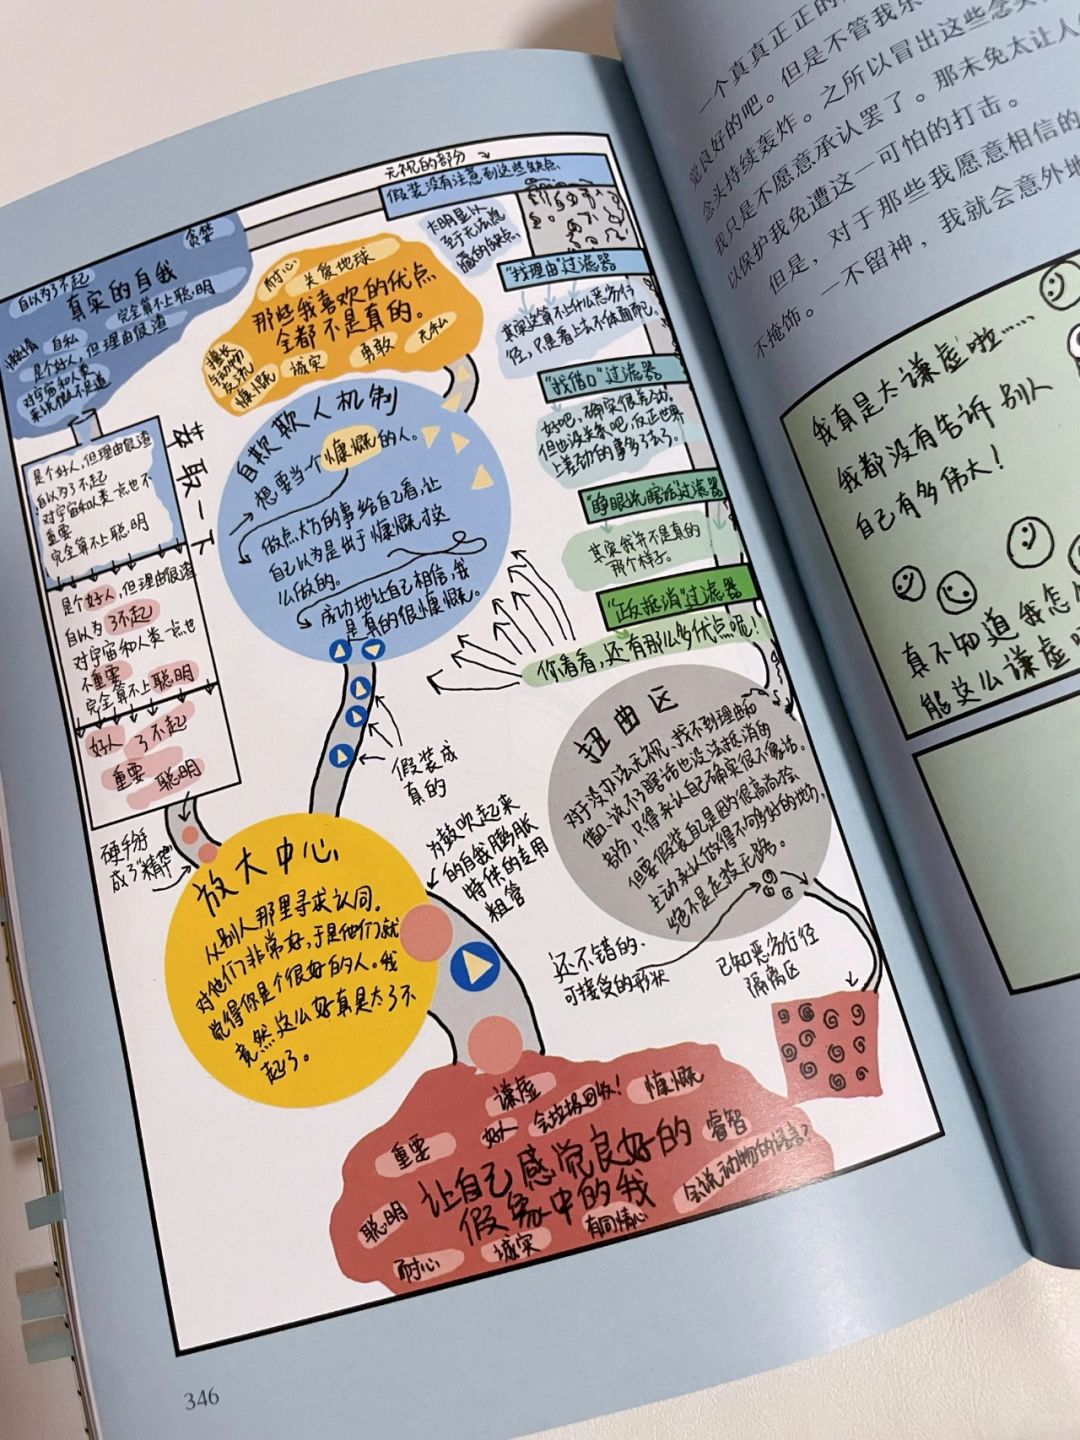 无视的部分
假装没有注意到这些缺点
贪婪
自以为了不起
真实的自我
完全算不上聪明
懒惰
自私
是个好人,但理由很渣
对宇宙和人类
来说微不足道
耐心
关爱地球
那些我喜欢的优点
全都不是真的。
擅长
与动物
交流
慷慨
诚实
勇敢
无私
卡明显以
至于无法忽
藏的缺点
“找理由”过滤器
其实这算不上什么恶劣行
径,只是看上去不体面而已。
“找借口”过滤器
好吧,确实很差劲。
但也没关系吧,反正世界
上差劲的事多了去了。
“睁眼说瞎话”过滤器
其实我并不是真的
那个样子。
“正反抵消”过滤器
你看看,还有那么多优点呢!
萃取一下
是个好人,但理由很渣
自以为了不起
对宇宙和人类一点也不
重要
完全算不上聪明
是个好人,但理由很渣
自以为了不起
对宇宙和人类一点也
不重要
完全算不上聪明
好人 了不起
重要 聪明
硬手掰
成了“精华”
自欺欺人机制
想要当个慷慨的人。
做点大方的事给自己看,让
自己以为是出于慷慨才这
么做的。
成功地让自己相信,我
是真的很慷慨。
假装成
真的
放大中心
从别人那里寻求认同。
对他们非常好,于是他们就
觉得你是个很好的人。我
竟然这么好真是太了不
起了。
为鼓吹起来
的自我膨胀
特件的专用
粗管
扭曲区
对于没办法无视、找不到理由和
借口、说不了瞎话也没法抵消的
部分,只得承认自己确实很不像话。
但要假装自己是因为很高尚才会
主动承认做得不够好的地方,
绝不是走投无路。
还不错的、
可接受的形状
已知恶劣行径
隔离区
谦虚
好人
会垃圾回收!
慷慨
重要
睿智
让自己感觉良好的
假象中的我
会说动物的语言?
聪明
有同情心
诚实
耐心
346
一个真真正正的
觉良好的吧。但是不管我乐
念头持续轰炸。之所以冒出这些念头,
我只是不愿意承认罢了。那未免太让人
以保护我免遭这一可怕的打击。
但是,对于那些我愿意相信的
一不留神,我就会意外地
不掩饰。
我真是太谦虚啦……
我都没有告诉别人
自己有多伟大!
真不知道我怎么
能这么谦虚